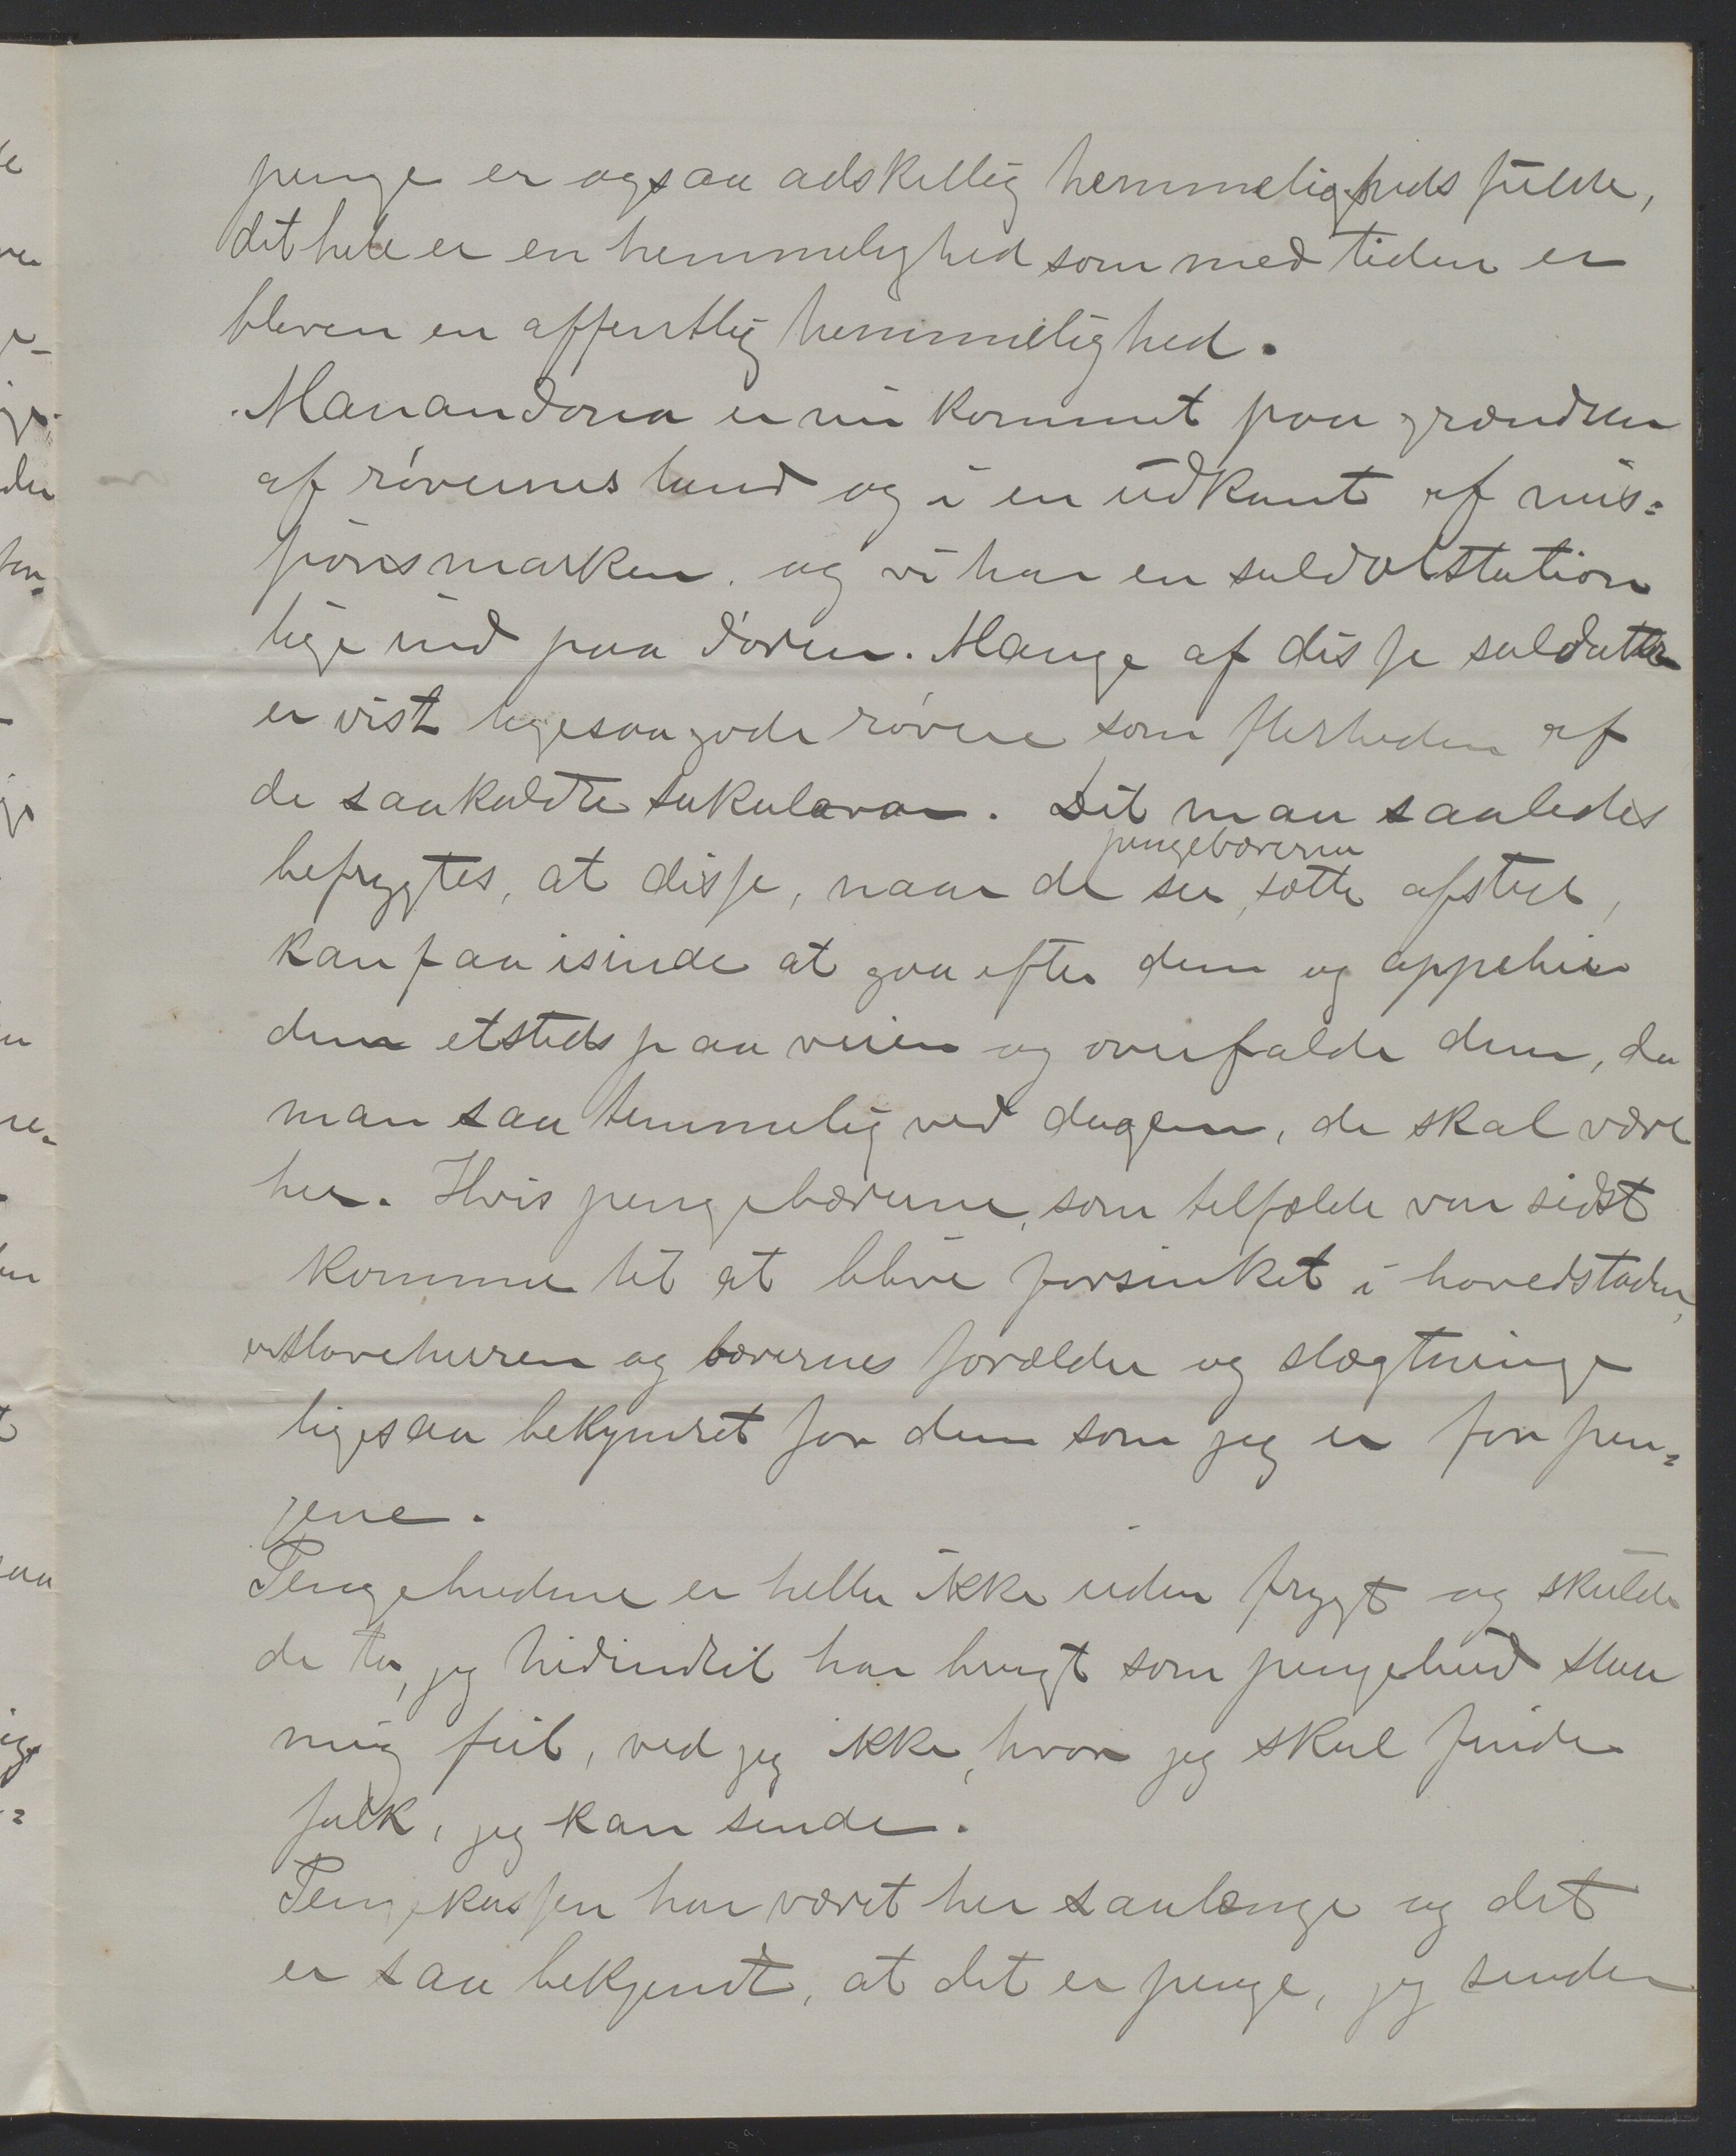 penge er ogsaa adskellig hemmelighedsfulde,
det hele er en hemmelighed som med tiden er
bleven en offentlig hemmelighed.
Manandona er nu kommet paa grændsen
af røvernes land og i en udkant af mis=
sionsmarken. og vi har en soldatstation
lige ind paa døren. Mange af disse soldater
er vist ligesaa gode røvere som flerheden af
de saakaldte sakalava. Det maa saaledes
pengebærerne
befrygtes, at disse, naar de ser, sætte afsted,
kan faa isinde at gaa efter dem og appehie
dem etsteds paa veien og overfalde dem, da
man saa temmelig ved dagen, de skal være
her. Hvis pengebærerne, som tilfælde var sidst
kommer til at blive forsinket i hovedstaden,
er slaveherren og bærernes forældre og slægtninge
ligesaa bekymret for dem som jeg er for pen=
gene.
Pengebudene er heller ikke uden frygt og skulde
de to, jeg hidindtil har brugt som pengebud slaa
mig feil, ved jeg ikke, hvor jeg skal finde
folk, jeg kan sende.
Pengekassen har været her saalænge og det
er saa bekjendt, at det er penge, jeg sender